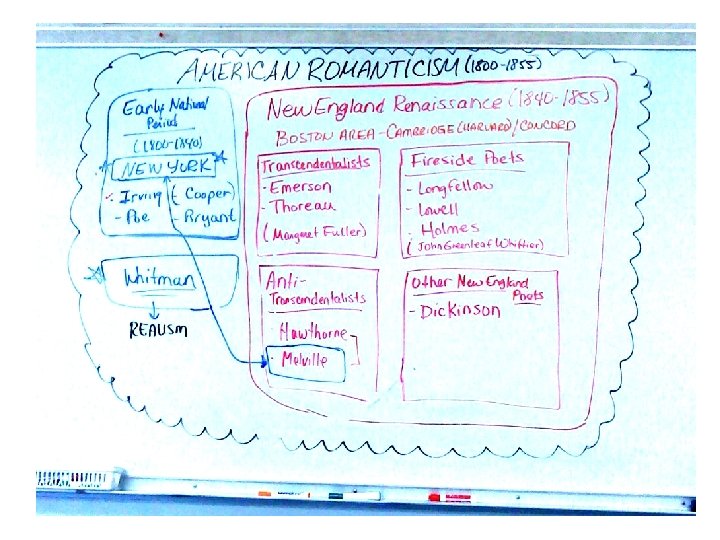 AMERICAN ROMANTICISM (1800-1855)
Early National
Period
(1800-1840)
NEW YORK
- Irving (- Cooper)
- Poe - Bryant
Whitman
REALISM
New England Renaissance (1840-1855)
BOSTON AREA - CAMBRIDGE (HARVARD) / CONCORD
Transcendentalists
- Emerson
- Thoreau
(Margaret Fuller)
Fireside Poets
- Longfellow
- Lowell
- Holmes
(John Greenleaf Whittier)
Anti-
Transcendentalists
- Hawthorne
- Melville
Other New England
Poets
- Dickinson